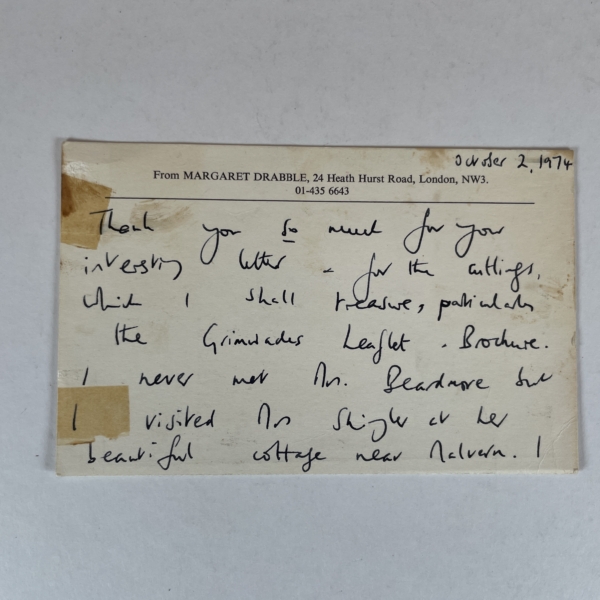 October 2, 1974
From MARGARET DRABBLE, 24 Heath Hurst Road, London, NW3.
01-435 6643
Thank you so much for your
interesting letter & for the cuttings,
which I shall treasure, particularly
the Grimwades Leaflet & Brochure.
I never met Mrs. Beardmore but
I visited Mrs Shingler at her
beautiful cottage near Malvern. I